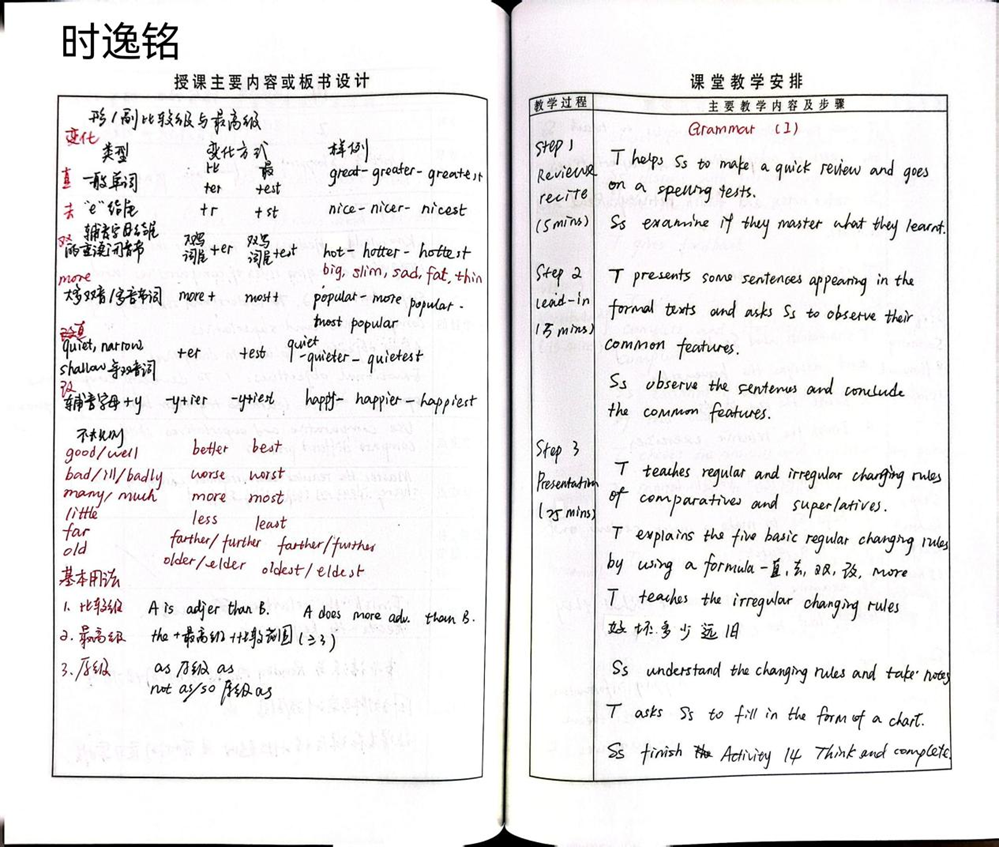 时逸铭
授课主要内容或板书设计
形/副比较级与最高级
变化
类型 变化方式 样例
比 最
直 一般单词 +er +est great-greater-greatest
去 "e"结尾 +r +st nice-nicer-nicest
双 辅音字母结尾
的重读闭音节 双写词尾+er 双写词尾+est hot-hotter-hottest
big, slim, sad, fat, thin
more
大多双音/多音节词 more+ most+ popular-more popular-
most popular
quiet, narrow
shallow等双音词 +er +est quiet-quieter-quietest
改
辅音字母+y -y+ier -y+iest happy-happier-happiest
不规则
good/well better best
bad/ill/badly worse worst
many/much more most
little less least
far farther/further farther/further
old older/elder oldest/eldest
基本用法
1. 比较级 A is adjer than B. A does more adv. than B.
2. 最高级 the+最高级+比较范围(≥3)
3. 原级 as 原级 as
not as/so 原级 as
课堂教学安排
教学过程 主要教学内容及步骤
Grammar (I)
Step 1
Review&
recite
(5mins)
T helps Ss to make a quick review and goes
on a spelling tests.
Ss examine if they master what they learnt.
Step 2
Lead-in
(5 mins)
T presents some sentences appearing in the
formal texts and asks Ss to observe their
common features.
Ss observe the sentences and conclude
the common features.
Step 3
Presentation
(25 mins)
T teaches regular and irregular changing rules
of comparatives and superlatives.
T explains the five basic regular changing rules
by using a formula-直,去,双,改,more
T teaches the irregular changing rules
好坏多少远旧
Ss understand the changing rules and take notes
T asks Ss to fill in the form of a chart.
Ss finish the Activity 14 Think and complete.